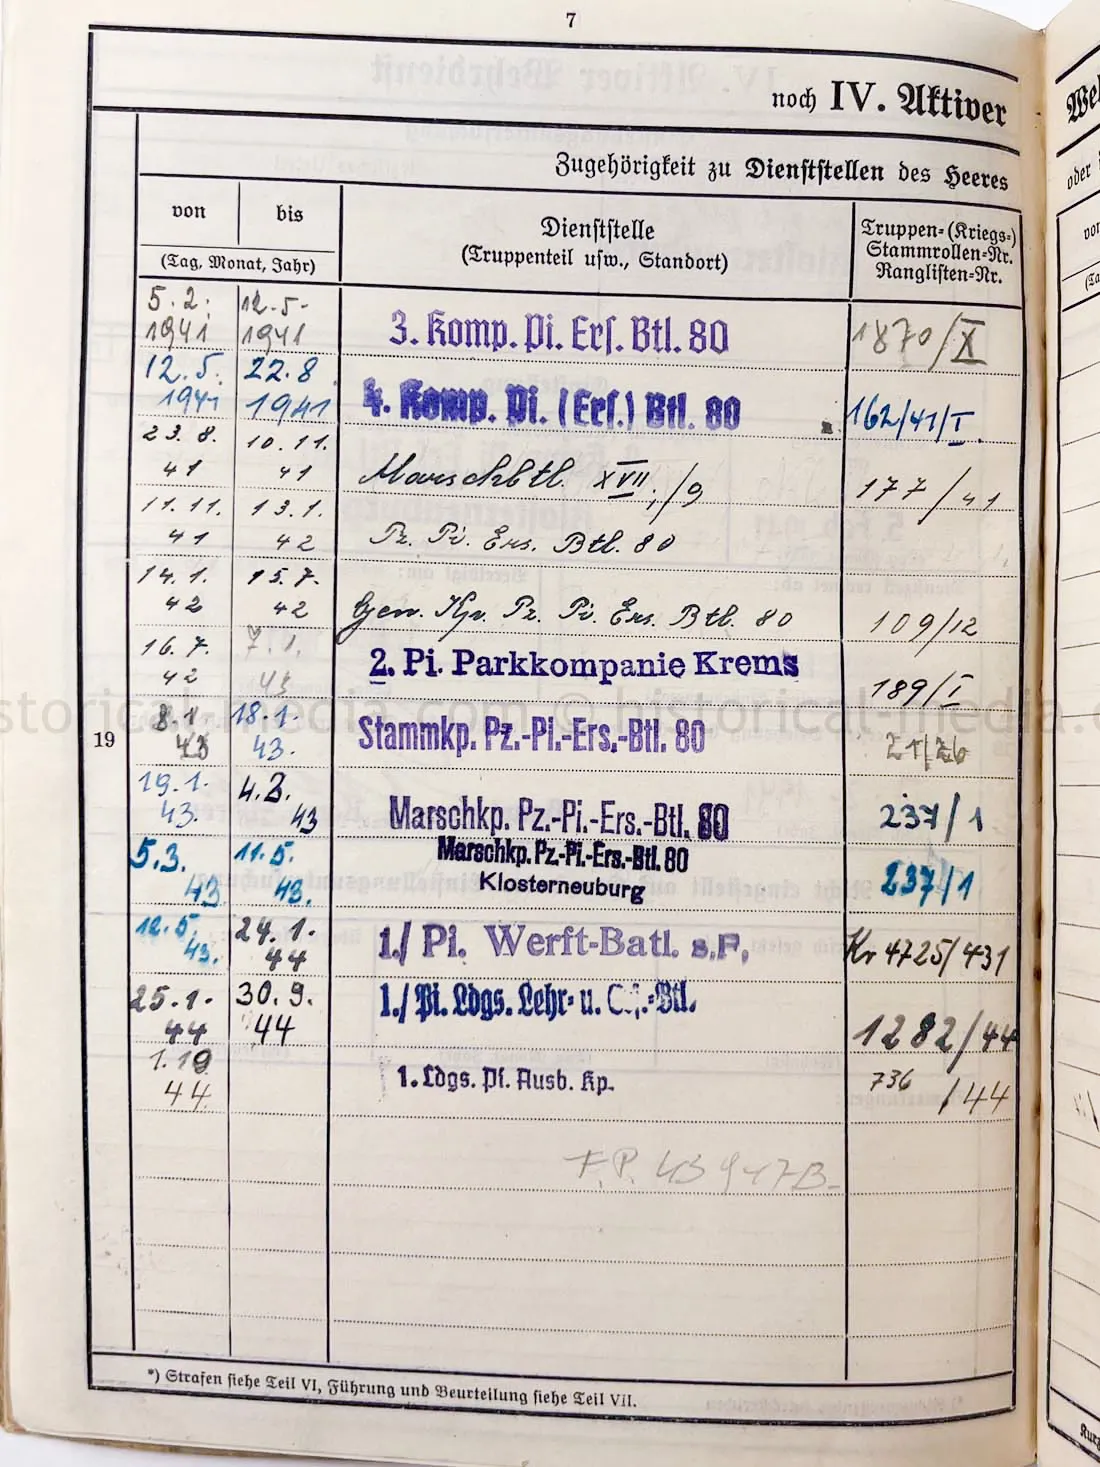 7
noch IV. Aktiver
Zugehörigkeit zu Dienststellen des Heeres
von bis Dienststelle (Truppenteil usw., Standort) Truppen-(Kriegs-) Stammrollen-Nr. Ranglisten-Nr.
(Tag, Monat, Jahr)
5.2. 1941 12.5. 1941 3. Komp. Pi. Ers. Btl. 80 1870/X
12.5. 1941 22.8 1941 4. Komp. Pi. (Ers.) Btl. 80 162/41/I.
23.8. 41 10.11. 41 Marschbtl. XVII./9 177/41
11.11. 41 13.1. 42 Pz. Pi. Ers. Btl. 80
14.1. 42 15.7. 42 Gen. Kp. Pz. Pi. Ers. Btl. 80 109/12
16.7. 42 7.1. 43 2. Pi. Parkkompanie Krems 189/I
8.1 43 18.1. 43. Stammkp. Pz.-Pi.-Ers.-Btl. 80
19
19.1. 43. 4.3. 43 Marschkp. Pz.-Pi.-Ers.-Btl. 80 237/1
5.3. 43 11.5. 43. Marschkp. Pz.-Pi.-Ers.-Btl. 80 Klosterneuburg 237/1
12.5. 43. 24.1. 44 1./ Pi. Werft-Batl. s.F. Kr 4725/431
25.1. 44 30.9. 44 1./Pi. Ldgs. Lehr- u. Btl. 1282/44
1.10 44 1. Ldgs. Pi. Ausb. Kp. 736/44
F.P. 43947B
*) Strafen siehe Teil VI, Führung und Beurteilung siehe Teil VII.
Wel
oder
von
historical-media.com © historical-media.c